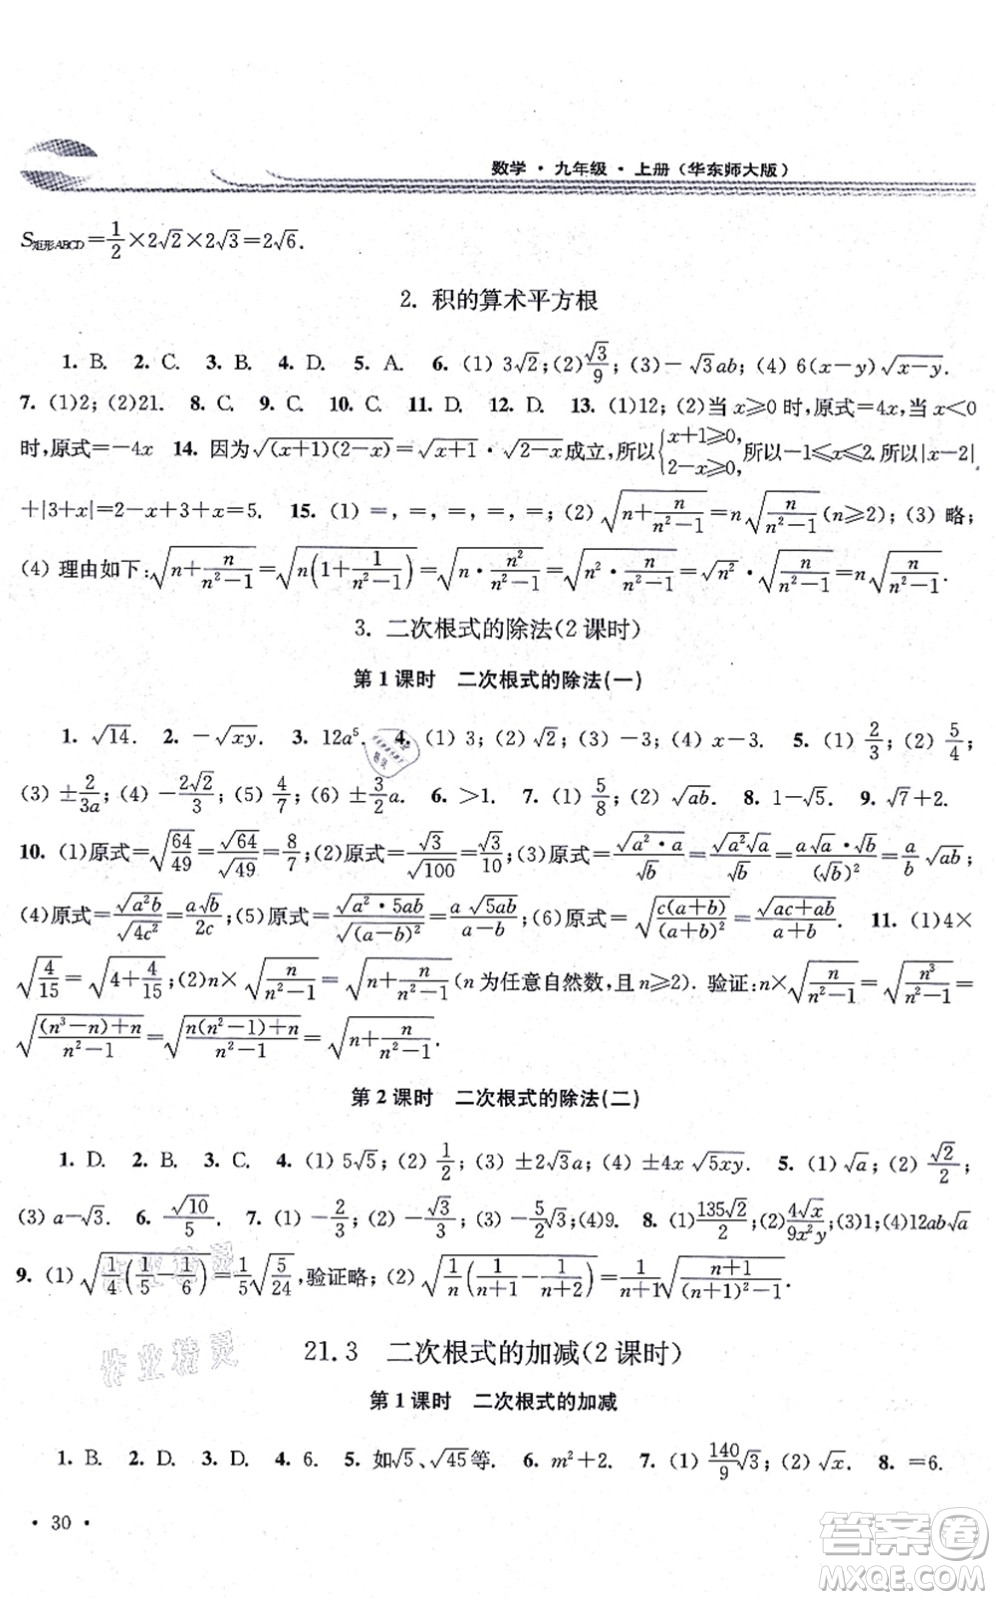 数学·九年级·上册（华东师大版）
S矩形ABCD=1/2×2√2×2√3=2√6.
2. 积的算术平方根
1. B. 2. C. 3. B. 4. D. 5. A. 6. (1) 3√2; (2) √3/9; (3) -√3ab; (4) 6(x-y)√(x-y).
7. (1)2; (2)21. 8. C. 9. C. 10. C. 11. D. 12. D. 13. (1)12; (2)当 x≥0 时,原式=4x,当 x<0
时,原式=-4x 14. 因为√((x+1)(2-x))=√(x+1)·√(2-x)成立,所以{x+1≥0, 2-x≥0, 所以-1≤x≤2.所以|x-2|
+|3+x|=2-x+3+x=5. 15. (1) =, =, =, =, =; (2) √(n+n/(n²-1))=n√(n/(n²-1))(n≥2); (3) 略;
(4) 理由如下:√(n+n/(n²-1))=√(n(1+1/(n²-1)))=√(n·n²/(n²-1))=√(n²·n/(n²-1))=√n²·√(n/(n²-1))=n√(n/(n²-1)).
3. 二次根式的除法(2 课时)
第 1 课时 二次根式的除法(一)
1. √14. 2. -√xy. 3. 12a⁵. 4. (1) 3; (2) √2; (3) -3; (4) x-3. 5. (1) 2/3; (2) 5/4;
(3) ±2/3a; (4) -2√2/3; (5) 4/7; (6) ±3/2a. 6. >1. 7. (1) 5/8; (2) √ab. 8. 1-√5. 9. √7+2.
10. (1)原式=√(64/49)=√64/√49=8/7; (2)原式=√3/√100=√3/10; (3)原式=√(a²·a)/√b=a√a/√b=a√a·√b/(√b)²=a/b √ab;
(4)原式=√(a²b)/√(4c²)=a√b/2c; (5)原式=√(a²·5ab)/√((a-b)²)=a√5ab/(a-b); (6)原式=√(c(a+b)/(a+b)²)=√(ac+ab)/(a+b). 11. (1)4×
√(4/15)=√(4+4/15); (2)n×√(n/(n²-1))=√(n+n/(n²-1))(n 为任意自然数,且 n≥2). 验证:n×√(n/(n²-1))=√(n³/(n²-1))=
√(((n³-n)+n)/(n²-1))=√((n(n²-1)+n)/(n²-1))=√(n+n/(n²-1)).
第 2 课时 二次根式的除法(二)
1. D. 2. B. 3. C. 4. (1) 5√5; (2) 1/2; (3) ±2√3a; (4) ±4x√5xy. 5. (1) √a; (2) √2/2;
(3) a-√3. 6. √10/5. 7. (1) -2/3; (2) -√3/3; (3) -5/2; (4)9. 8. (1)135√2/2; (2)4√x/9x²y; (3)1; (4)12ab√a
9. (1) √(1/4(1/5-1/6))=1/5√(5/24),验证略; (2) √(1/n(1/(n+1)-1/(n+2)))=1/(n+1)√((n+1)/((n+1)²-1)).
21.3 二次根式的加减(2 课时)
第 1 课时 二次根式的加减
1. B. 2. D. 3. D. 4. B. 5. 如√5、√45等. 6. m²+2. 7. (1) 140/9√3; (2) √x. 8. =6.
· 30 ·
作业精灵
答案卷
MXQE.COM